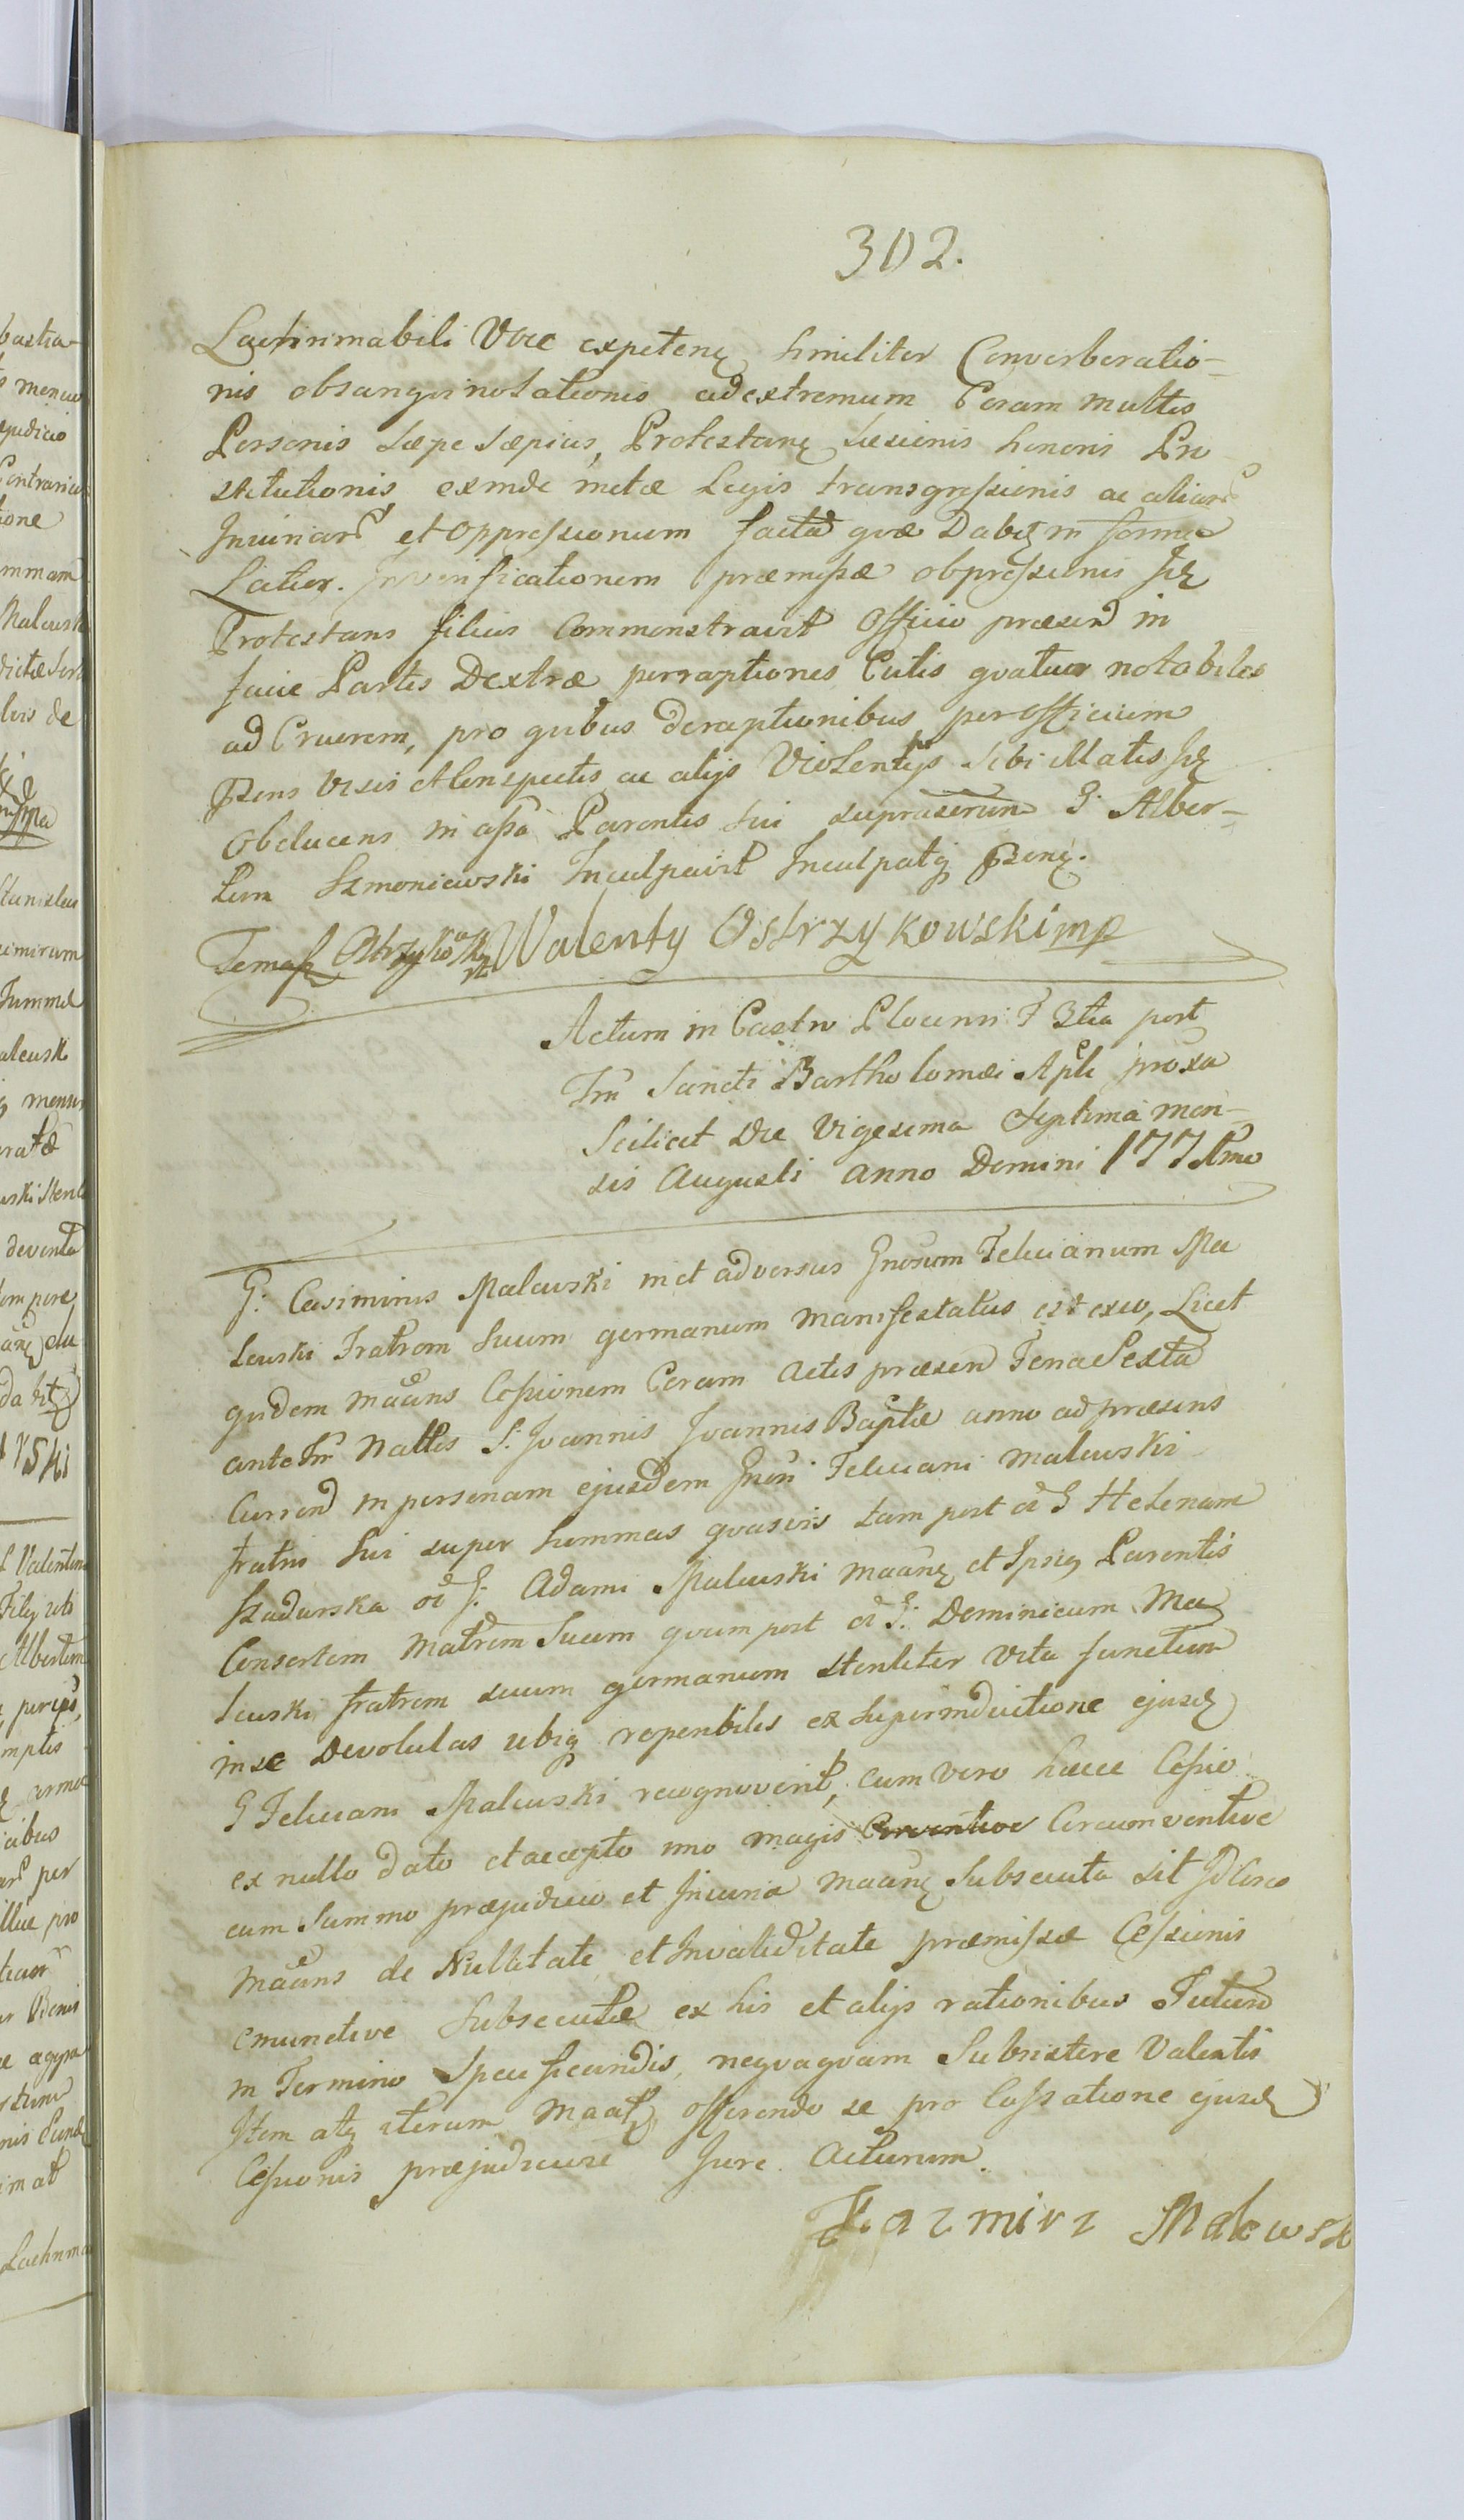 302.
Lachrimabili Voce expetenꝫ similiter Converberatio-
nis obsangvinolationis ad extremum Coram multis
Personis sæpe sæpius, Protestanꝫ Læsionis honoris Pro
stitutionis exinde metæ Legis transgreſsionis ac aliarꝫ
Injuriarꝫ et Oppreſsionum facta qvæ Dabꝫ in forma
Latior. In verificationem præmiſsæ obpreſsionis Jꝫ
Protestans filius Commonstravit Officio præsend in
facie Partis Dextræ perraptiones Cutis qvatuor notabiles
ad Cruorem, pro qvibus deraptionibus per Officium
Pzens Visis et Conspectis ac alijs Violentijs sibi Illatis Jꝫ
Obducens in aſsa Parentis sui supraserim G. Alber-
tum Szmoniewski Inculpavit Inculpatqꝫ Pzenꝫ.
Walenty Ostrzykowski mp
Actum in Castro Plocenn: F 3tia post
Fm Sancti Bartholomæi Apli proxa
Scilicet Die Vigesima Septima men-
sis Augusti Anno Domini 177
G: Casimirus Malewski in et adversus Gnosum Felicianum Ma
lewski Fratrem Suum germanum manifestatus est exeo, Licet
qvidem maãns Ceſsionem Coram Actis præsend Feria Sexta
ante Fm Nattis S. Joannis Joannis Baptæ anno ad præsens
Currend in personam ejusdem Gnosi Feliciani Malewski
fratris sui super Summas qvasvis tam post ol G Helenam
Szadurska ol G: Adami Malewski maanꝫ et Ipsiꝫ Parentis
Consortem Matrem Suam qvam post ol G: Dominicum Ma
lewski fratrem suum germanum steriliter Vita functum
in se Devolutas ubiqꝫ reperibiles ex Superinductione ejusdꝫ
G Feliciani Malewski recognoverit, cum Vero hæcce Ceſsio
ex nullo dato et accepto imo magis Circumventive
cum Summo præjudicio et Injuria maanꝫ Subsecuta sit Id Circo
Maãns de Nullitate et Invaliditate præmiſsæ Ceſsionis
emunctive Subsecutæ ex his et alijs rationibus Futuro
in Termino Specificandis, neqvaqvam Subsistere Valentis
Item atqꝫ iterum Maatꝫ offerendo se pro Caſsatione ejusdꝫ
Ceſsionis præjudiciosæ Jure Acturum.
Kazmirz Malewsk